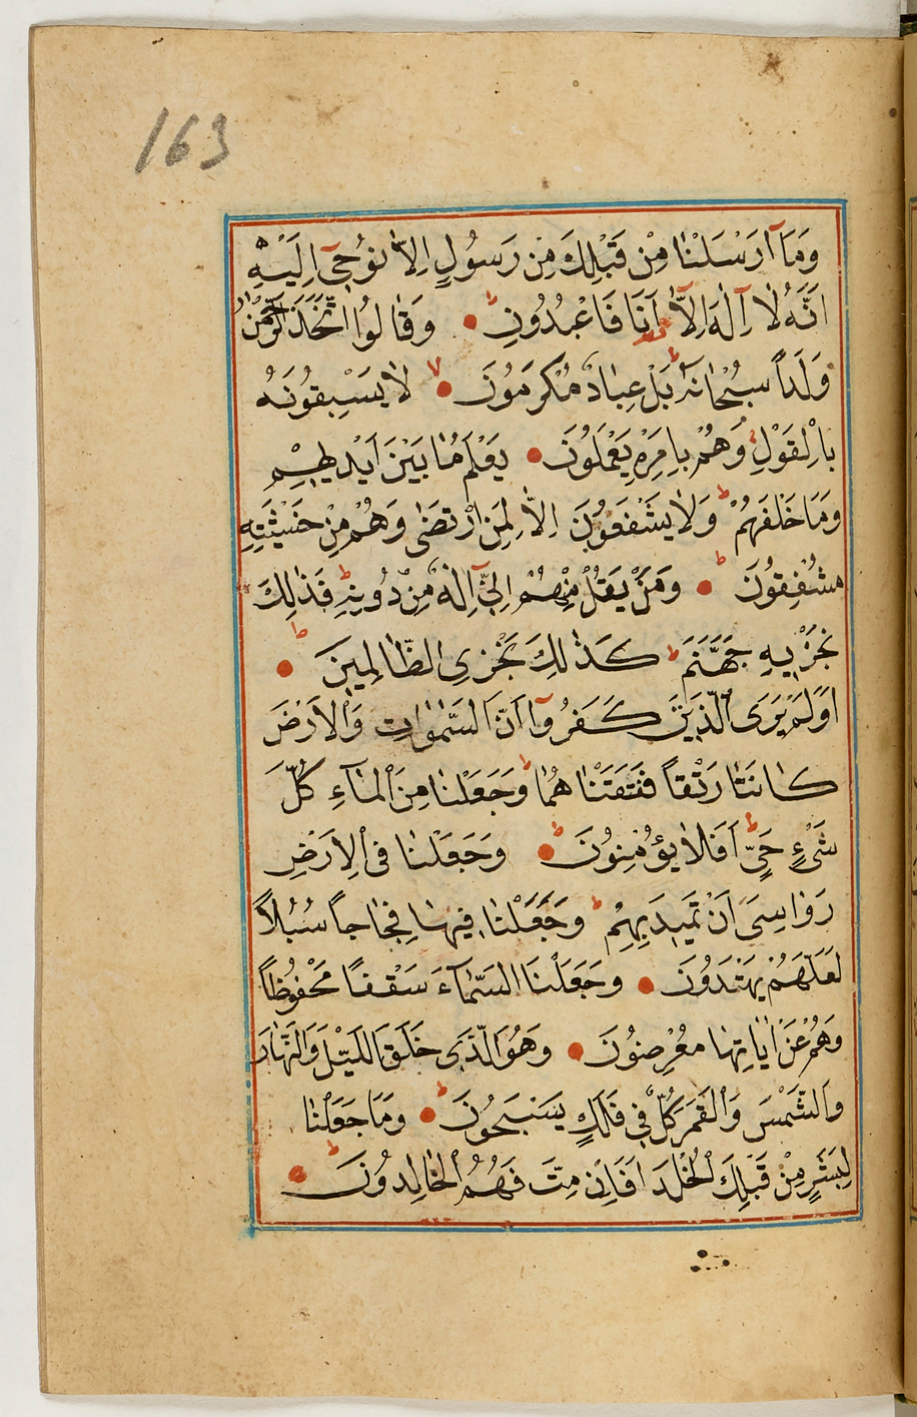 163
وَمَآ اَرْسَلْنَا مِنْ قَبْلِكَ مِنْ رَسُولٍ اِلاَّ نُوحِىٓ اِلَيْهِ
اَنَّهُ لَآ اِلٰهَ اِلآَّ اَنَا فَاعْبُدُونِ وَقَالُوا اتَّخَذَ الرَّحْمٰنُ
وَلَداً سُبْحَانَهُ بَلْ عِبَادٌ مُكْرَمُونَ لَا يَسْبِقُونَهُ
بِالْقَوْلِ وَهُمْ بِاَمْرِهِ يَعْمَلُونَ يَعْلَمُ مَا بَيْنَ اَيْدِيهِمْ
وَمَا خَلْفَهُمْ وَلَا يَشْفَعُونَ اِلاَّ لِمَنِ ارْتَضٰى وَهُمْ مِنْ خَشْيَتِهِ
مُشْفِقُونَ وَمَنْ يَقُلْ مِنْهُمْ اِنِّىٓ اِلٰهٌ مِنْ دُونِهِ فَذٰلِكَ
نَجْزِيهِ جَهَنَّمَ كَذٰلِكَ نَجْزِى الظَّالِمِينَ
اَوَلَمْ يَرَى الَّذِينَ كَفَرُوٓا اَنَّ السَّمٰوَاتِ وَالْاَرْضَ
كَانَتَا رَتْقاً فَفَتَقْنَاهُمَا وَجَعَلْنَا مِنَ الْمَآءِ كُلَّ
شَىْءٍ حَىٍّ اَفَلَا يُؤْمِنُونَ وَجَعَلْنَا فِى الْاَرْضِ
رَوَاسِىَ اَنْ تَمِيدَ بِهِمْ وَجَعَلْنَا فِيهَا فِجَاجاً سُبُلاً
لَعَلَّهُمْ يَهْتَدُونَ وَجَعَلْنَا السَّمَآءَ سَقْفاً مَحْفُوظاً
وَهُمْ عَنْ اٰيَاتِهَا مُعْرِضُونَ وَهُوَ الَّذِى خَلَقَ اللَّيْلَ وَالنَّهَارَ
وَالشَّمْسَ وَالْقَمَرَ كُلٌّ فِى فَلَكٍ يَسْبَحُونَ وَمَا جَعَلْنَا
لِبَشَرٍ مِنْ قَبْلِكَ الْخُلْدَ اَفَاِنْ مِتَّ فَهُمُ الْخَالِدُونَ